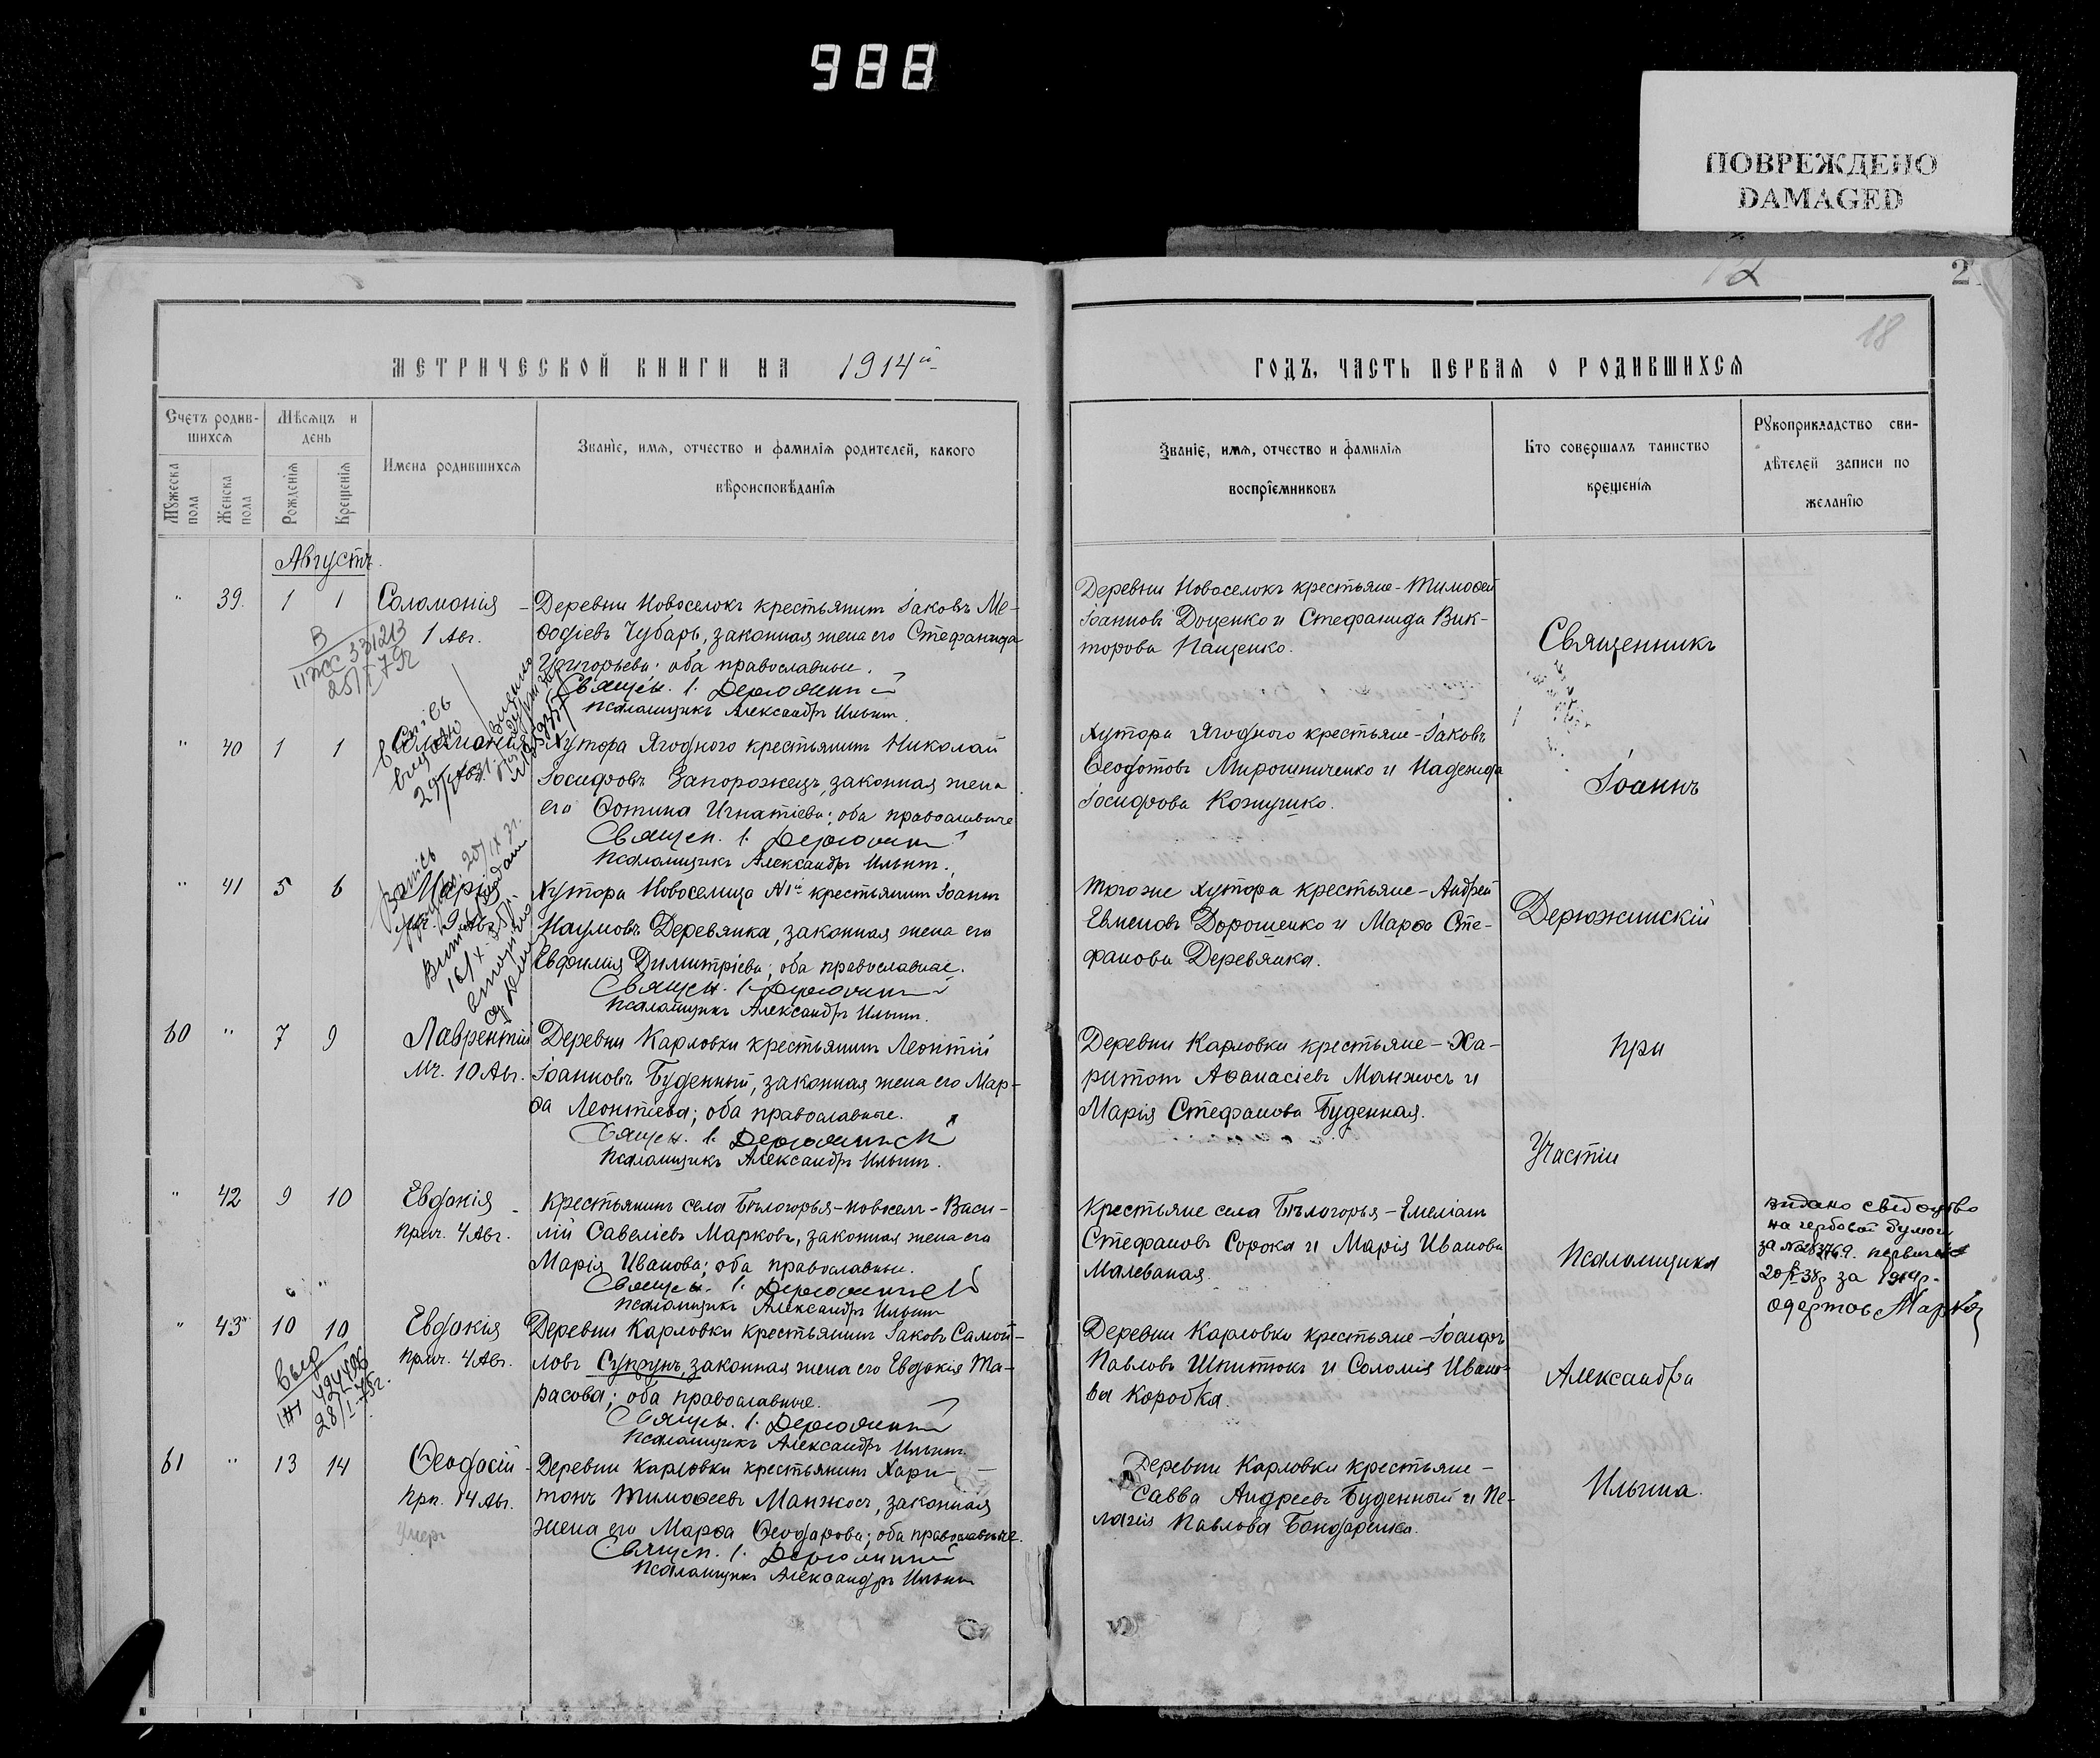 988
ПОВРЕЖДЕНО
DAMAGED
2
18
МЕТРИЧЕСКОЙ КНИГИ НА 1914й
Счетъ родив-
шихся
Мѣсяцъ и
день
Имена родившихся
Званіе, имя, отчество и фамилія родителей, какого
вѣроисповѣданія
Мужеска
пола
Женска
пола
Рожденія
Крещенія
Августъ.
" 39. 1 1 Соломонія - Деревни Новоселокъ крестьянинъ Іаковъ Ме-
1 Авг. ѳодіевъ Чубарь, законная жена его Стефанида
Григорьева; оба православные.
Священ. І. Дерюжинскій
Псаломщикъ Александръ Ильинъ.
В
331213
" 40 1 1 Соломонія Хутора Ягодного крестьянинъ Николай
Іосифовъ Запорожецъ, законная жена
его Фотина Игнатіева; оба православные
Священ. І. Дерюжинскій
Псаломщикъ Александръ Ильинъ.
" 41 5 6 Марія Хутора Новоселица №1й крестьянинъ Іоаннъ
9 Авг. Наумовъ Деревянка, законная жена его
Евфимія Димитріева; оба православные.
Священ. І. Дерюжинскій
Псаломщикъ Александръ Ильинъ.
60 " 7 9 Лаврентій Деревни Карловки крестьянинъ Леонтій
Мч. 10 Авг. Іоанновъ Буденный, законная жена его Мар-
ѳа Леонтіева; оба православные.
Священ. І. Дерюжинскій
Псаломщикъ Александръ Ильинъ.
" 42 9 10 Евдокія - Крестьянинъ села Бѣлогорья-новосел - Васи-
Прмч. 4 Авг. лій Савеліевъ Марковъ, законная жена его
Марія Иванова; оба православные.
Священ. І. Дерюжинскій
Псаломщикъ Александръ Ильинъ
" 43 10 10 Евдокія Деревни Карловки крестьянинъ Іаковъ Самой-
Прмч. 4 Авг. ловъ Супрунъ, законная жена его Евдокія Та-
расова; оба православные.
Священ. І. Дерюжинскій
Псаломщикъ Александръ Ильинъ.
Выд
28/I-75г.
61 " 13 14 Ѳеодосій - Деревни Карловки крестьянинъ Хари-
Прп. 14 Авг. тонъ Тимоѳеевъ Манжосъ, законная
Умеръ жена его Марѳа Ѳеодорова; оба православные.
Священ. І. Дерюжинскій
Псаломщикъ Александръ Ильинъ
ГОДЪ, ЧАСТЬ ПЕРВАЯ О РОДИВШИХСЯ
Званіе, имя, отчество и фамилія
воспріемниковъ
Кто совершалъ таинство
крещенія
Рукоприкладство сви-
дѣтелей записи по
желанію
Деревни Новоселокъ крестьяне - Тимоѳей
Іоанновъ Доценко и Стефанида Вик-
торова Пащенко.
Хутора Ягодного крестьяне - Іаковъ
Ѳеодотовъ Мирошниченко и Надежда
Іосифова Кожушко.
Того же хутора крестьяне - Андрей
Евменовъ Дорошенко и Марѳа Сте-
фанова Деревянка.
Деревни Карловки крестьяне - Ха-
ритонъ Аѳанасіевъ Манжосъ и
Марія Стефанова Буденная.
Крестьяне села Бѣлогорья - Емеліанъ
Стефановъ Сорока и Марія Иванова
Малеваная.
Деревни Карловки крестьяне - Іосифъ
Павловъ Шпитюкъ и Соломія Ивано-
ва Коробка.
Деревни Карловки крестьяне -
Савва Андреевъ Буденный и Пе-
лагія Павлова Бондаренка.
Священникъ
Іоаннъ
Дерюжинскій
при
Участіи
Псаломщика
Александра
Ильина.
видано свідоцтво
на гербовой бумаги